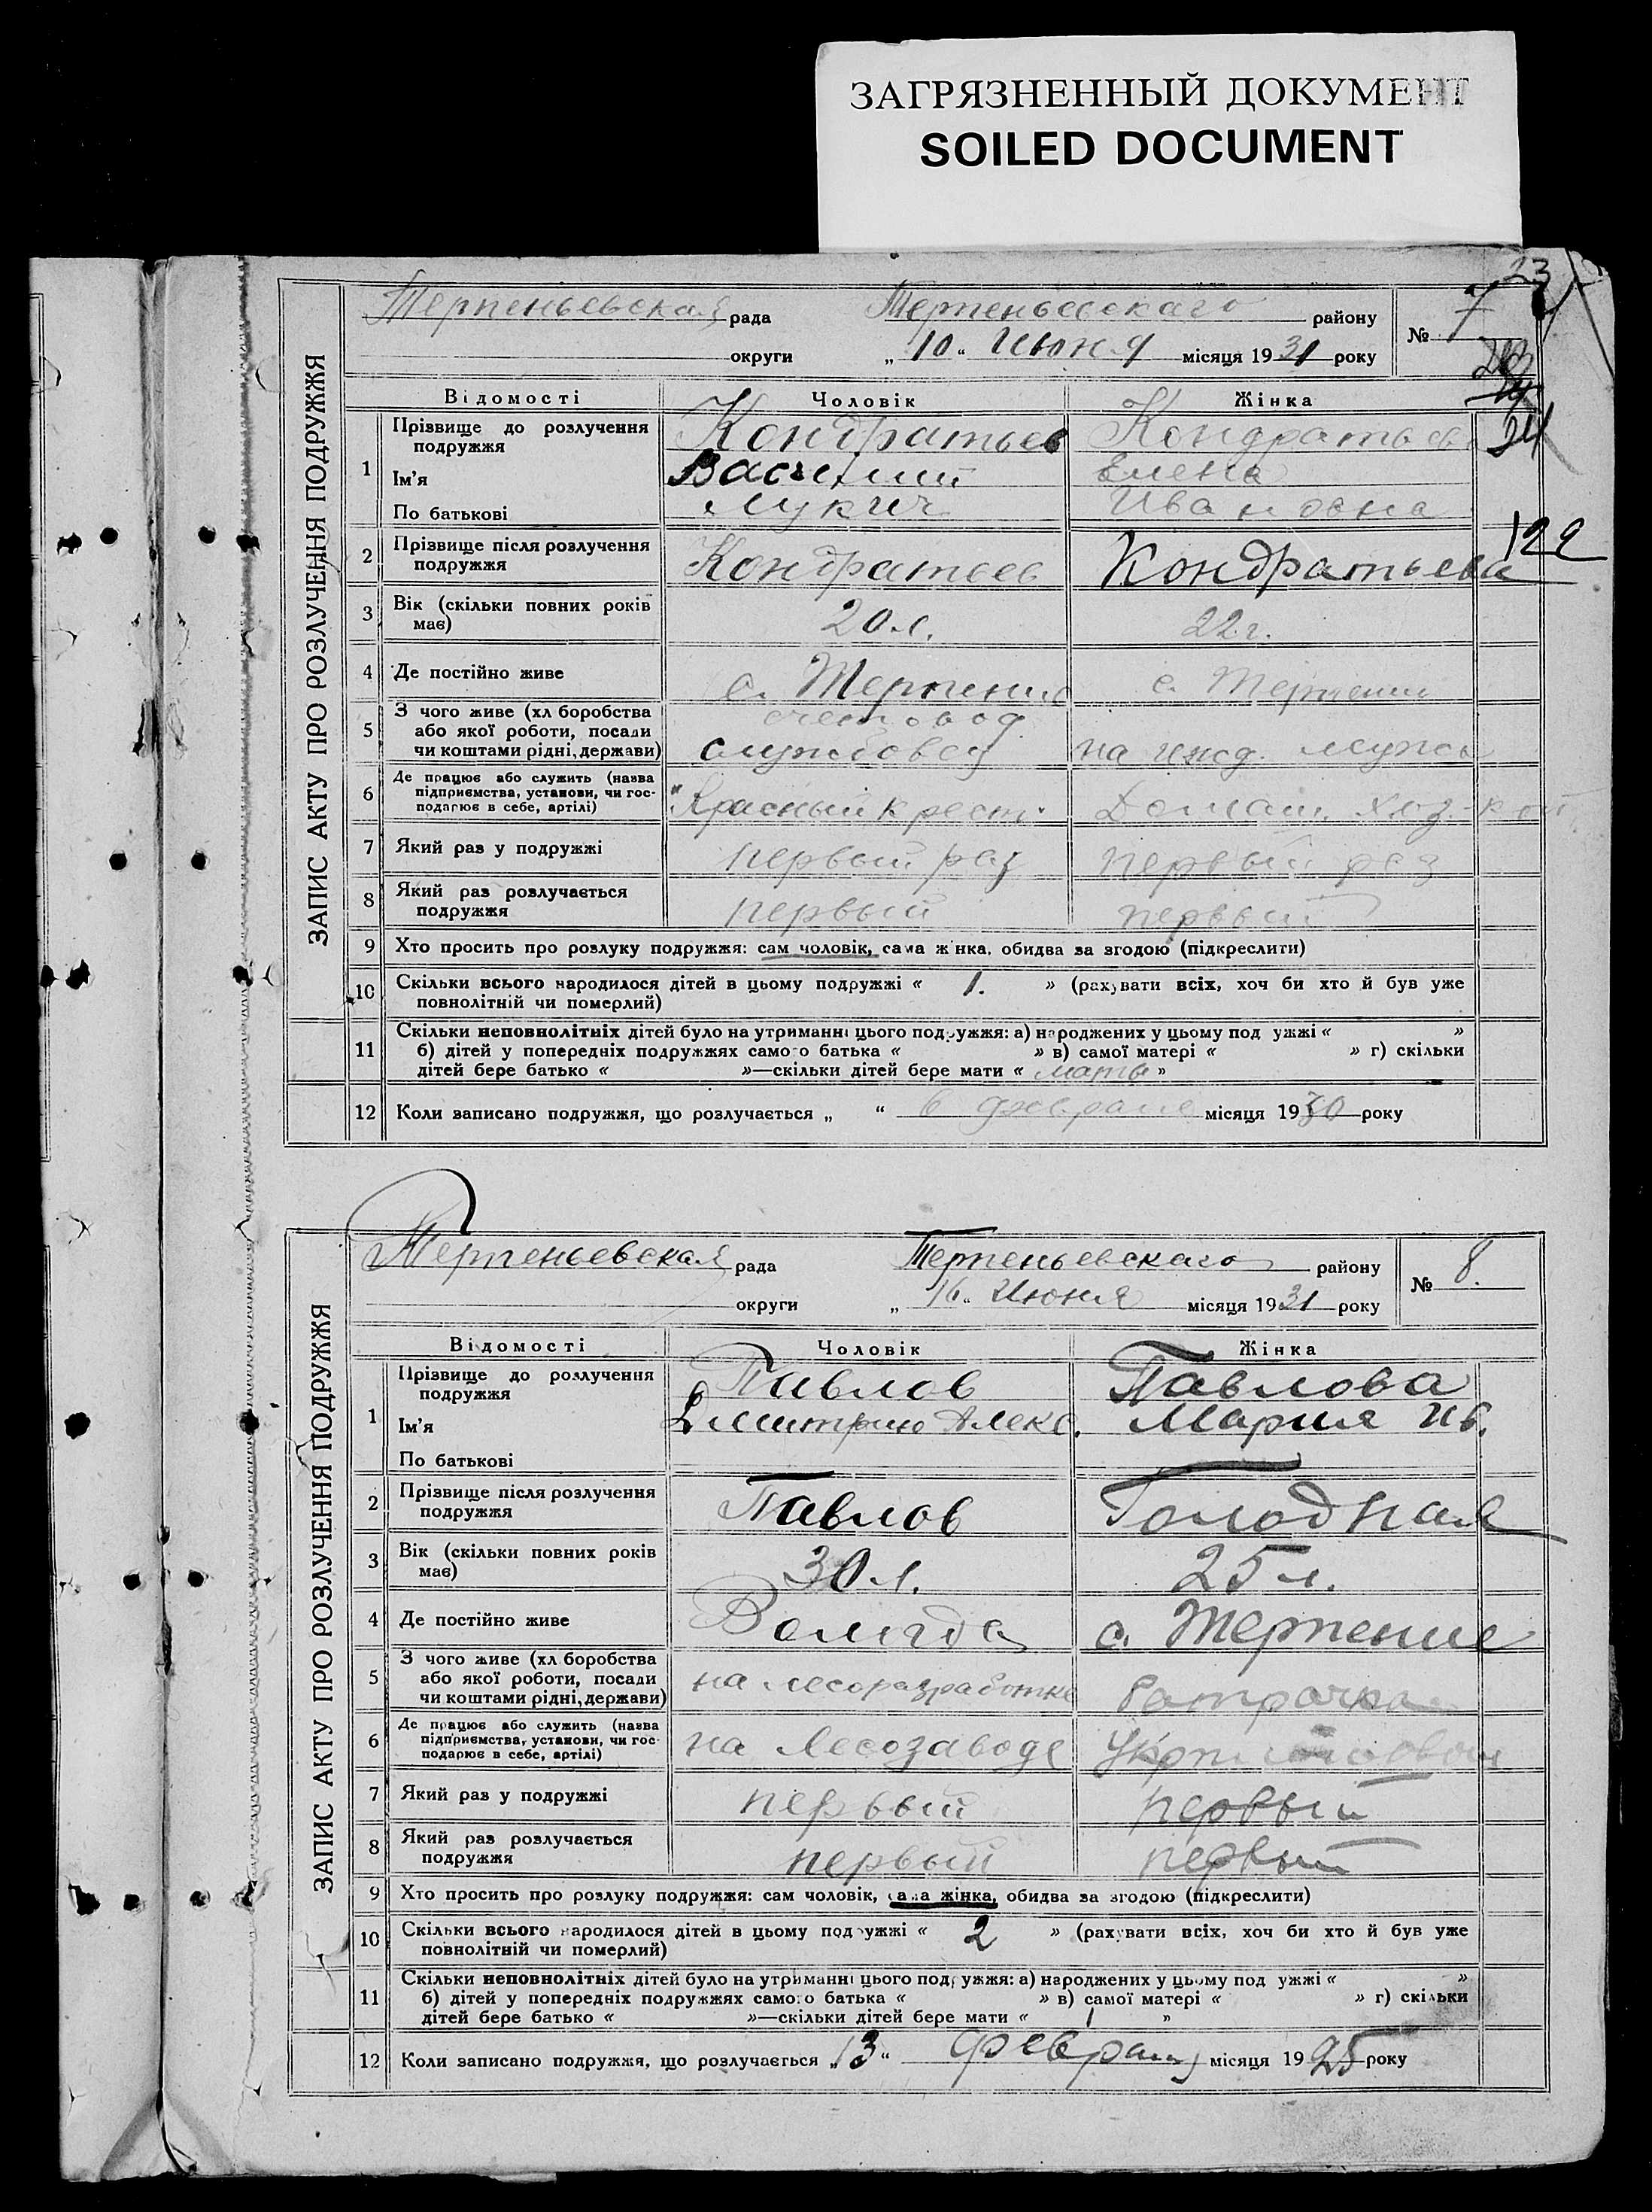 ЗАГРЯЗНЕННЫЙ ДОКУМЕНТ
SOILED DOCUMENT
23
ЗАПИС АКТУ ПРО РОЗЛУЧЕННЯ ПОДРУЖЖЯ
Терпеньевская рада Терпеньевскаго району № 7
округи „10“ Июня місяця 1931 року
Відомості Чоловік Жінка
24
1 Прізвище до розлучення подружжя Кондратьев Кондратьева
Ім'я Василий Елена
По батькові Лукич Ивановна
122
2 Прізвище після розлучення подружжя Кондратьев Кондратьева
3 Вік (скільки повних років має) 20 л. 22 г.
4 Де постійно живе с. Терпение с. Терпение
5 З чого живе (хліборобства або якої роботи, посади чи коштами рідні, держави) счетовод службовец на ижд. мужа
6 Де працює або служить (назва підприємства, установи, чи господарює в себе, артілі) "Красный Крест" Домаш. хоз-кой
7 Який раз у подружжі первый раз первый раз
8 Який раз розлучається подружжя первый первый
9 Хто просить про розлуку подружжя: сам чоловік, сама жінка, обидва за згодою (підкреслити)
10 Скільки всього народилося дітей в цьому подружжі « 1. » (рахувати всіх, хоч би хто й був уже
повнолітній чи померлий)
11 Скільки неповнолітніх дітей було на утриманні цього подружжя: а) народжених у цьому подружжі « »
б) дітей у попередніх подружжях самого батька « » в) самої матері « » г) скільки
дітей бере батько « »—скільки дітей бере мати « мать »
12 Коли записано подружжя, що розлучається „ “ 6 февраля місяця 1930 року
ЗАПИС АКТУ ПРО РОЗЛУЧЕННЯ ПОДРУЖЖЯ
Терпеньевская рада Терпеньевскаго району № 8.
округи „16“ Июня місяця 1931 року
Відомості Чоловік Жінка
1 Прізвище до розлучення подружжя Павлов Павлова
Ім'я Дмитрию Алекс. Мария Ив.
По батькові
2 Прізвище після розлучення подружжя Павлов Голодная
3 Вік (скільки повних років має) 30 л. 25 л.
4 Де постійно живе Вологда с. Терпение
5 З чого живе (хліборобства або якої роботи, посади чи коштами рідні, держави) на лесоразработке батрачка
6 Де працює або служить (назва підприємства, установи, чи господарює в себе, артілі) на лесозаводе
7 Який раз у подружжі первый первый
8 Який раз розлучається подружжя первый первый
9 Хто просить про розлуку подружжя: сам чоловік, сама жінка, обидва за згодою (підкреслити)
10 Скільки всього народилося дітей в цьому подружжі « 2 » (рахувати всіх, хоч би хто й був уже
повнолітній чи померлий)
11 Скільки неповнолітніх дітей було на утриманні цього подружжя: а) народжених у цьому подружжі « »
б) дітей у попередніх подружжях самого батька « » в) самої матері « » г) скільки
дітей бере батько « »—скільки дітей бере мати « 1 »
12 Коли записано подружжя, що розлучається „13“ февраля місяця 1925 року